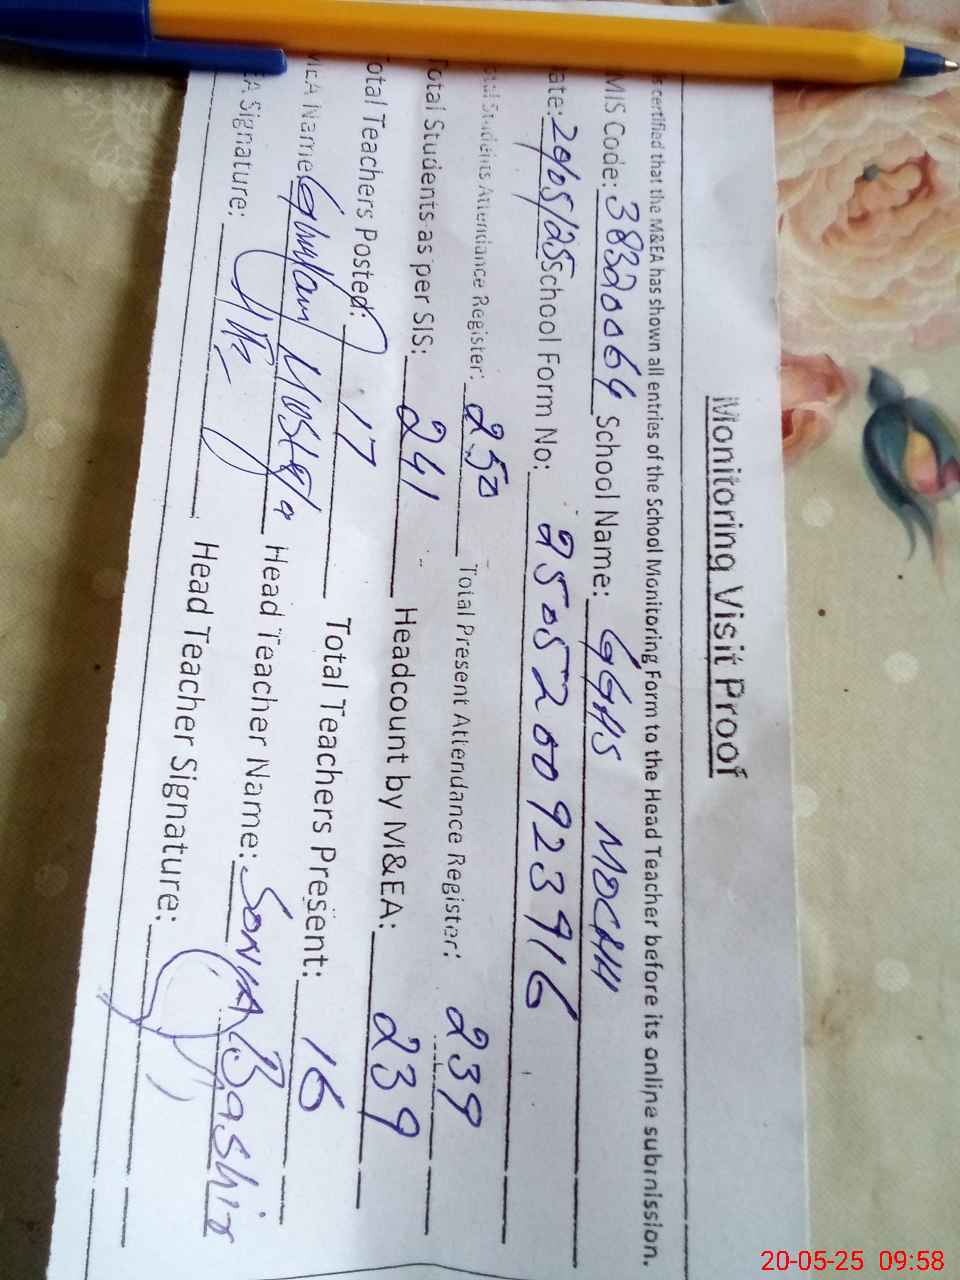 Monitoring Visit Proof
s certified that the M&EA has shown all entries of the School Monitoring Form to the Head Teacher before its online submission.
MIS Code: 38320064 School Name: GGHS MOCHH
ate: 20/05/25 School Form No: 2505200923916
otal Students Attendance Register: 250 Total Present Attendance Register: 239
otal Students as per SIS: 241 Headcount by M&EA: 239
otal Teachers Posted: 17 Total Teachers Present: 16
MEA Name: Ghulam Mustafa Head Teacher Name: SONIA Bashir
EA Signature: Head Teacher Signature:
20-05-25 09:58